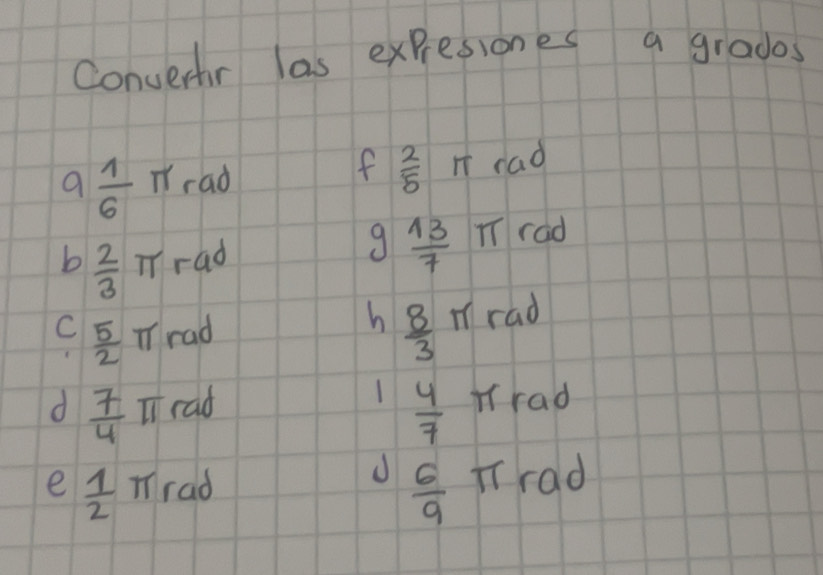 Convertir las expresiones a grados
a 1/6 π rad
b 2/3 π rad
c. 5/2 π rad
d 7/4 π rad
e 1/2 π rad
f 2/5 π rad
g 13/7 π rad
h 8/3 π rad
i 4/7 π rad
j 6/9 π rad